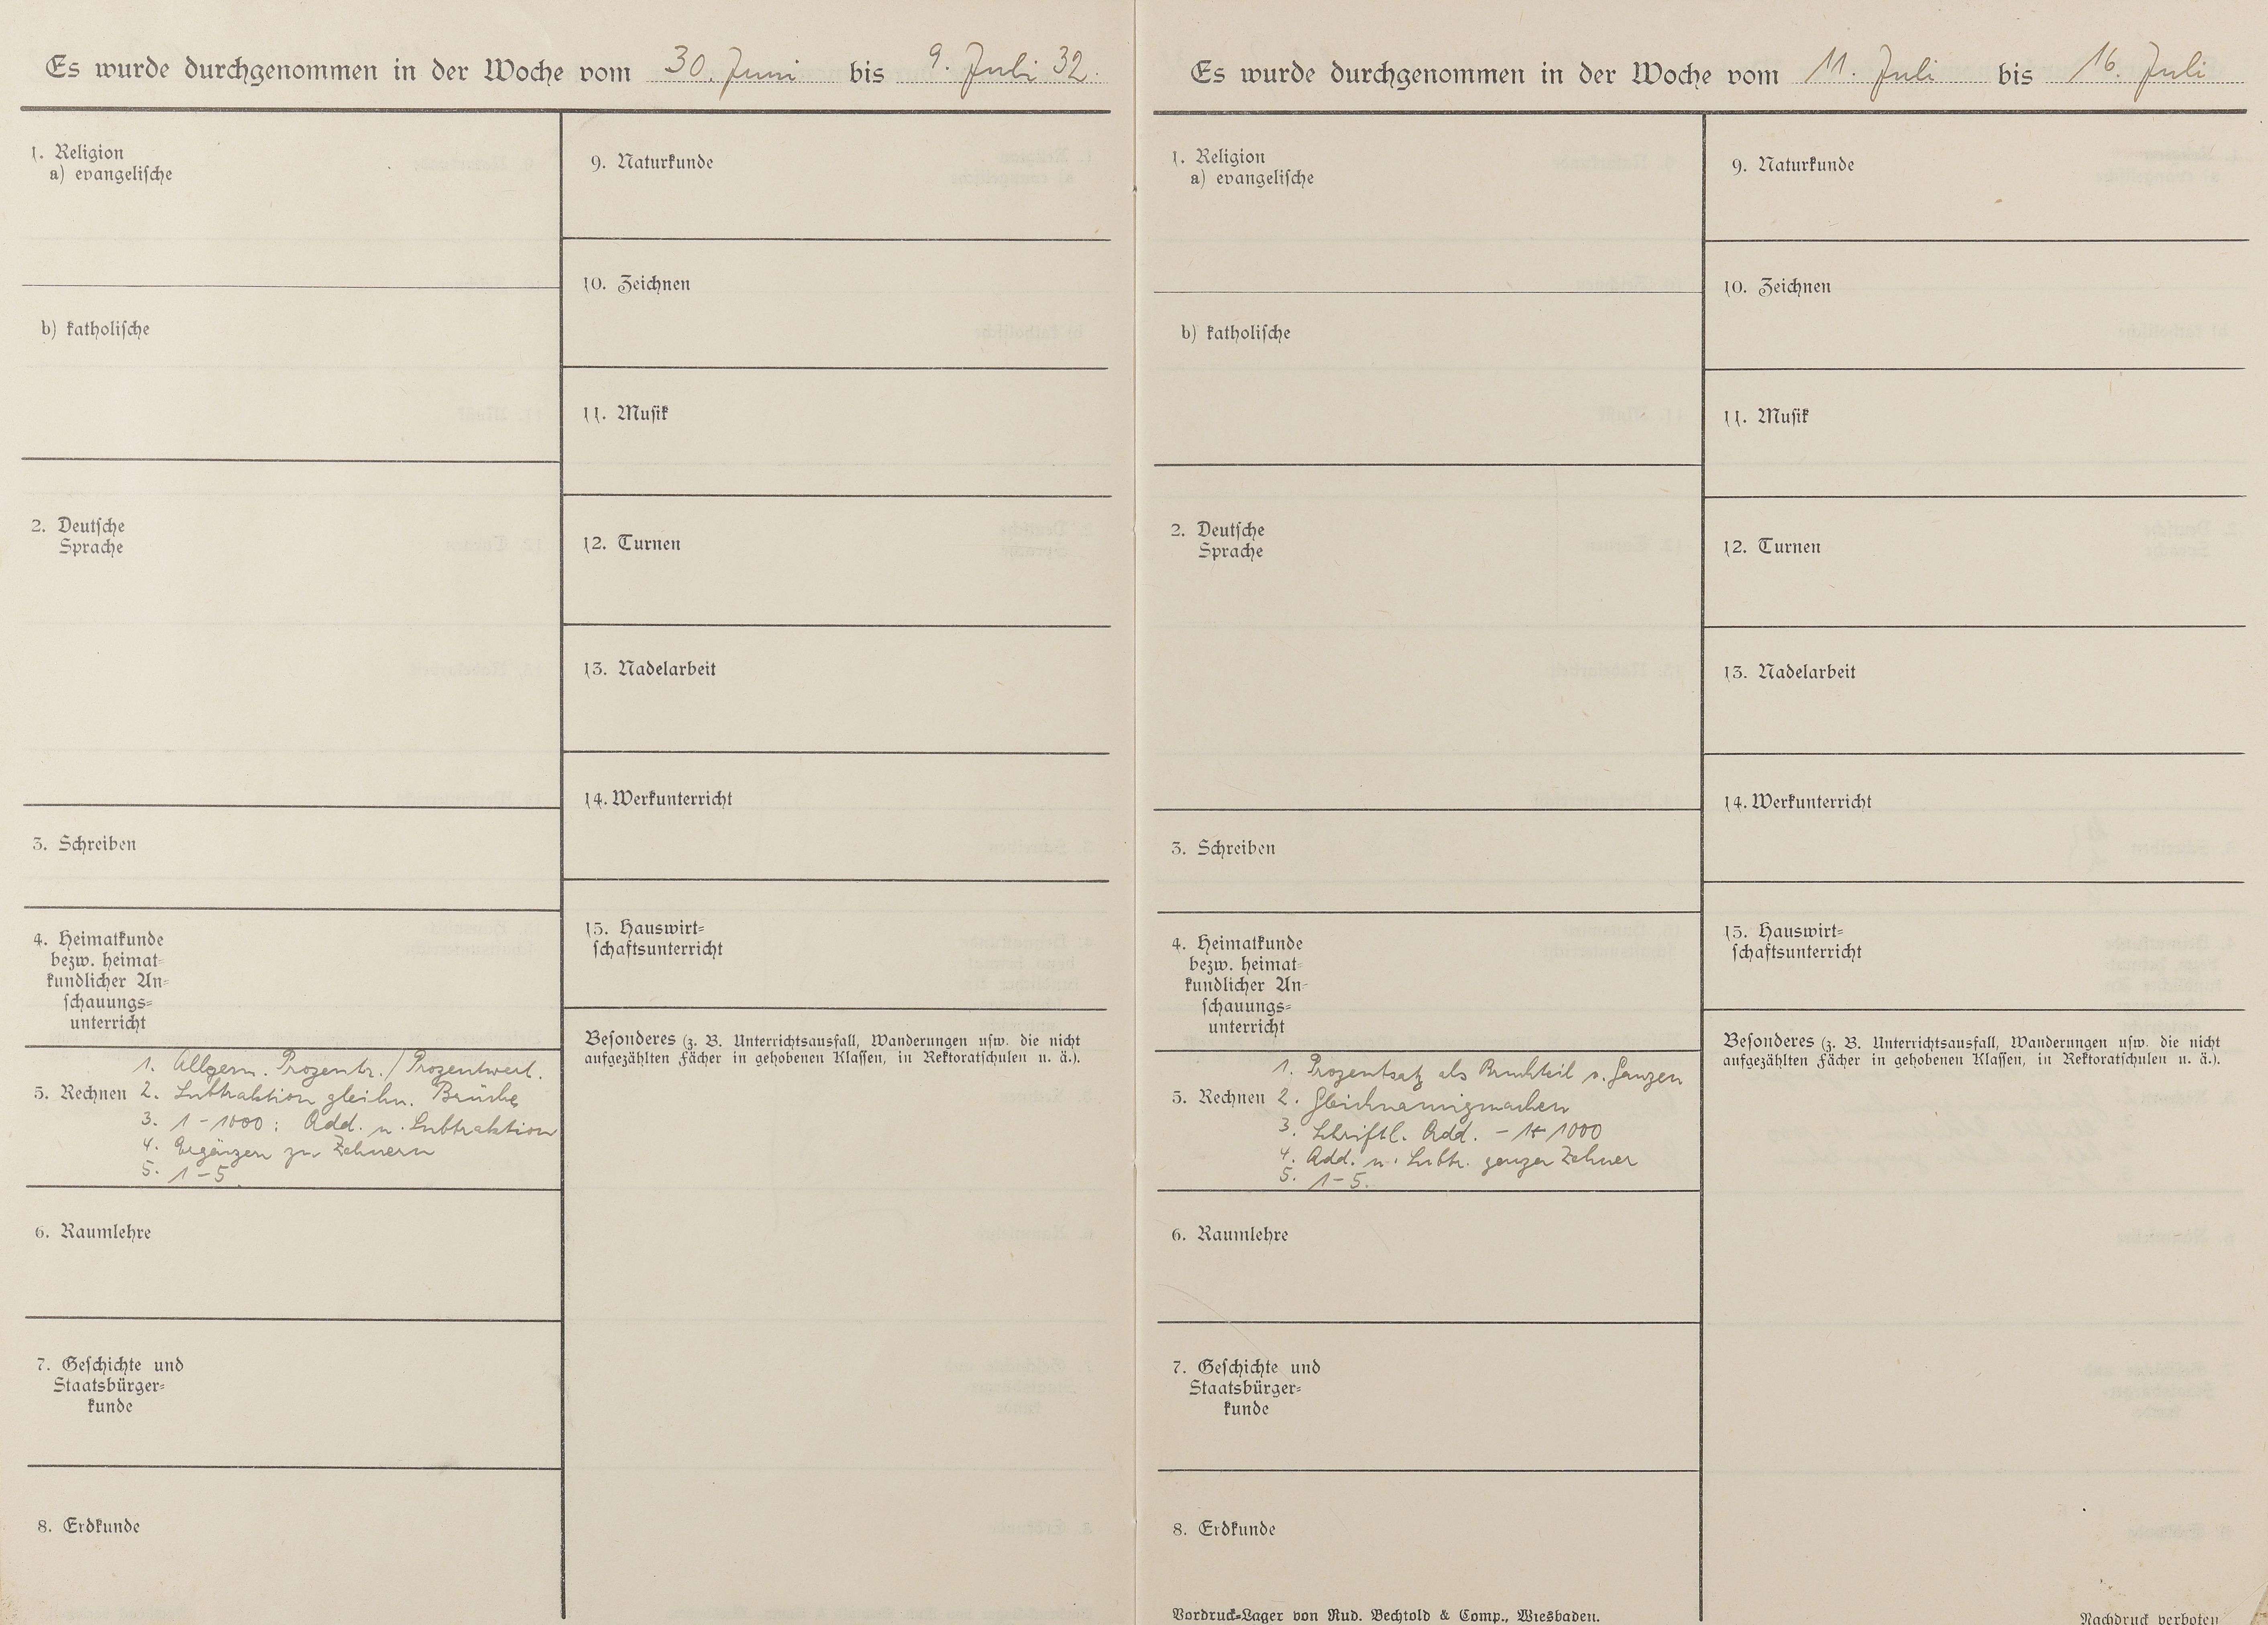 Es wurde durchgenommen in der Woche vom 30. Juni bis 9. Juli 32.
1. Religion
a) evangelische
b) katholische
2. Deutsche
Sprache
3. Schreiben
4. Heimatkunde
bezw. heimat-
kundlicher An-
schauungs-
unterricht
5. Rechnen
1. Allgem. Prozentr. / Prozentwert.
2. Subtraktion gleichn. Brüche
3. 1 - 1000 : Add. u. Subtraktion
4. Ergänzen zu Zehnern
5. 1 - 5.
6. Raumlehre
7. Geschichte und
Staatsbürger-
kunde
8. Erdkunde
9. Naturkunde
10. Zeichnen
11. Musik
12. Turnen
13. Nadelarbeit
14. Werkunterricht
15. Hauswirt-
schaftsunterricht
Besonderes (z. B. Unterrichtsausfall, Wanderungen usw. die nicht
aufgezählten Fächer in gehobenen Klassen, in Rektoratschulen u. ä.).
Es wurde durchgenommen in der Woche vom 11. Juli bis 16. Juli
1. Religion
a) evangelische
b) katholische
2. Deutsche
Sprache
3. Schreiben
4. Heimatkunde
bezw. heimat-
kundlicher An-
schauungs-
unterricht
5. Rechnen
1. Prozentsatz als Bruchteil v. Ganzen
2. Gleichnamigmachen
3. Schriftl. Add. - 1000
4. Add. u. Subtr. ganzer Zehner
5. 1 - 5.
6. Raumlehre
7. Geschichte und
Staatsbürger-
kunde
8. Erdkunde
Vordruck-Lager von Rud. Bechtold & Comp., Wiesbaden.
9. Naturkunde
10. Zeichnen
11. Musik
12. Turnen
13. Nadelarbeit
14. Werkunterricht
15. Hauswirt-
schaftsunterricht
Besonderes (z. B. Unterrichtsausfall, Wanderungen usw. die nicht
aufgezählten Fächer in gehobenen Klassen, in Rektoratschulen u. ä.).
Nachdruck verboten